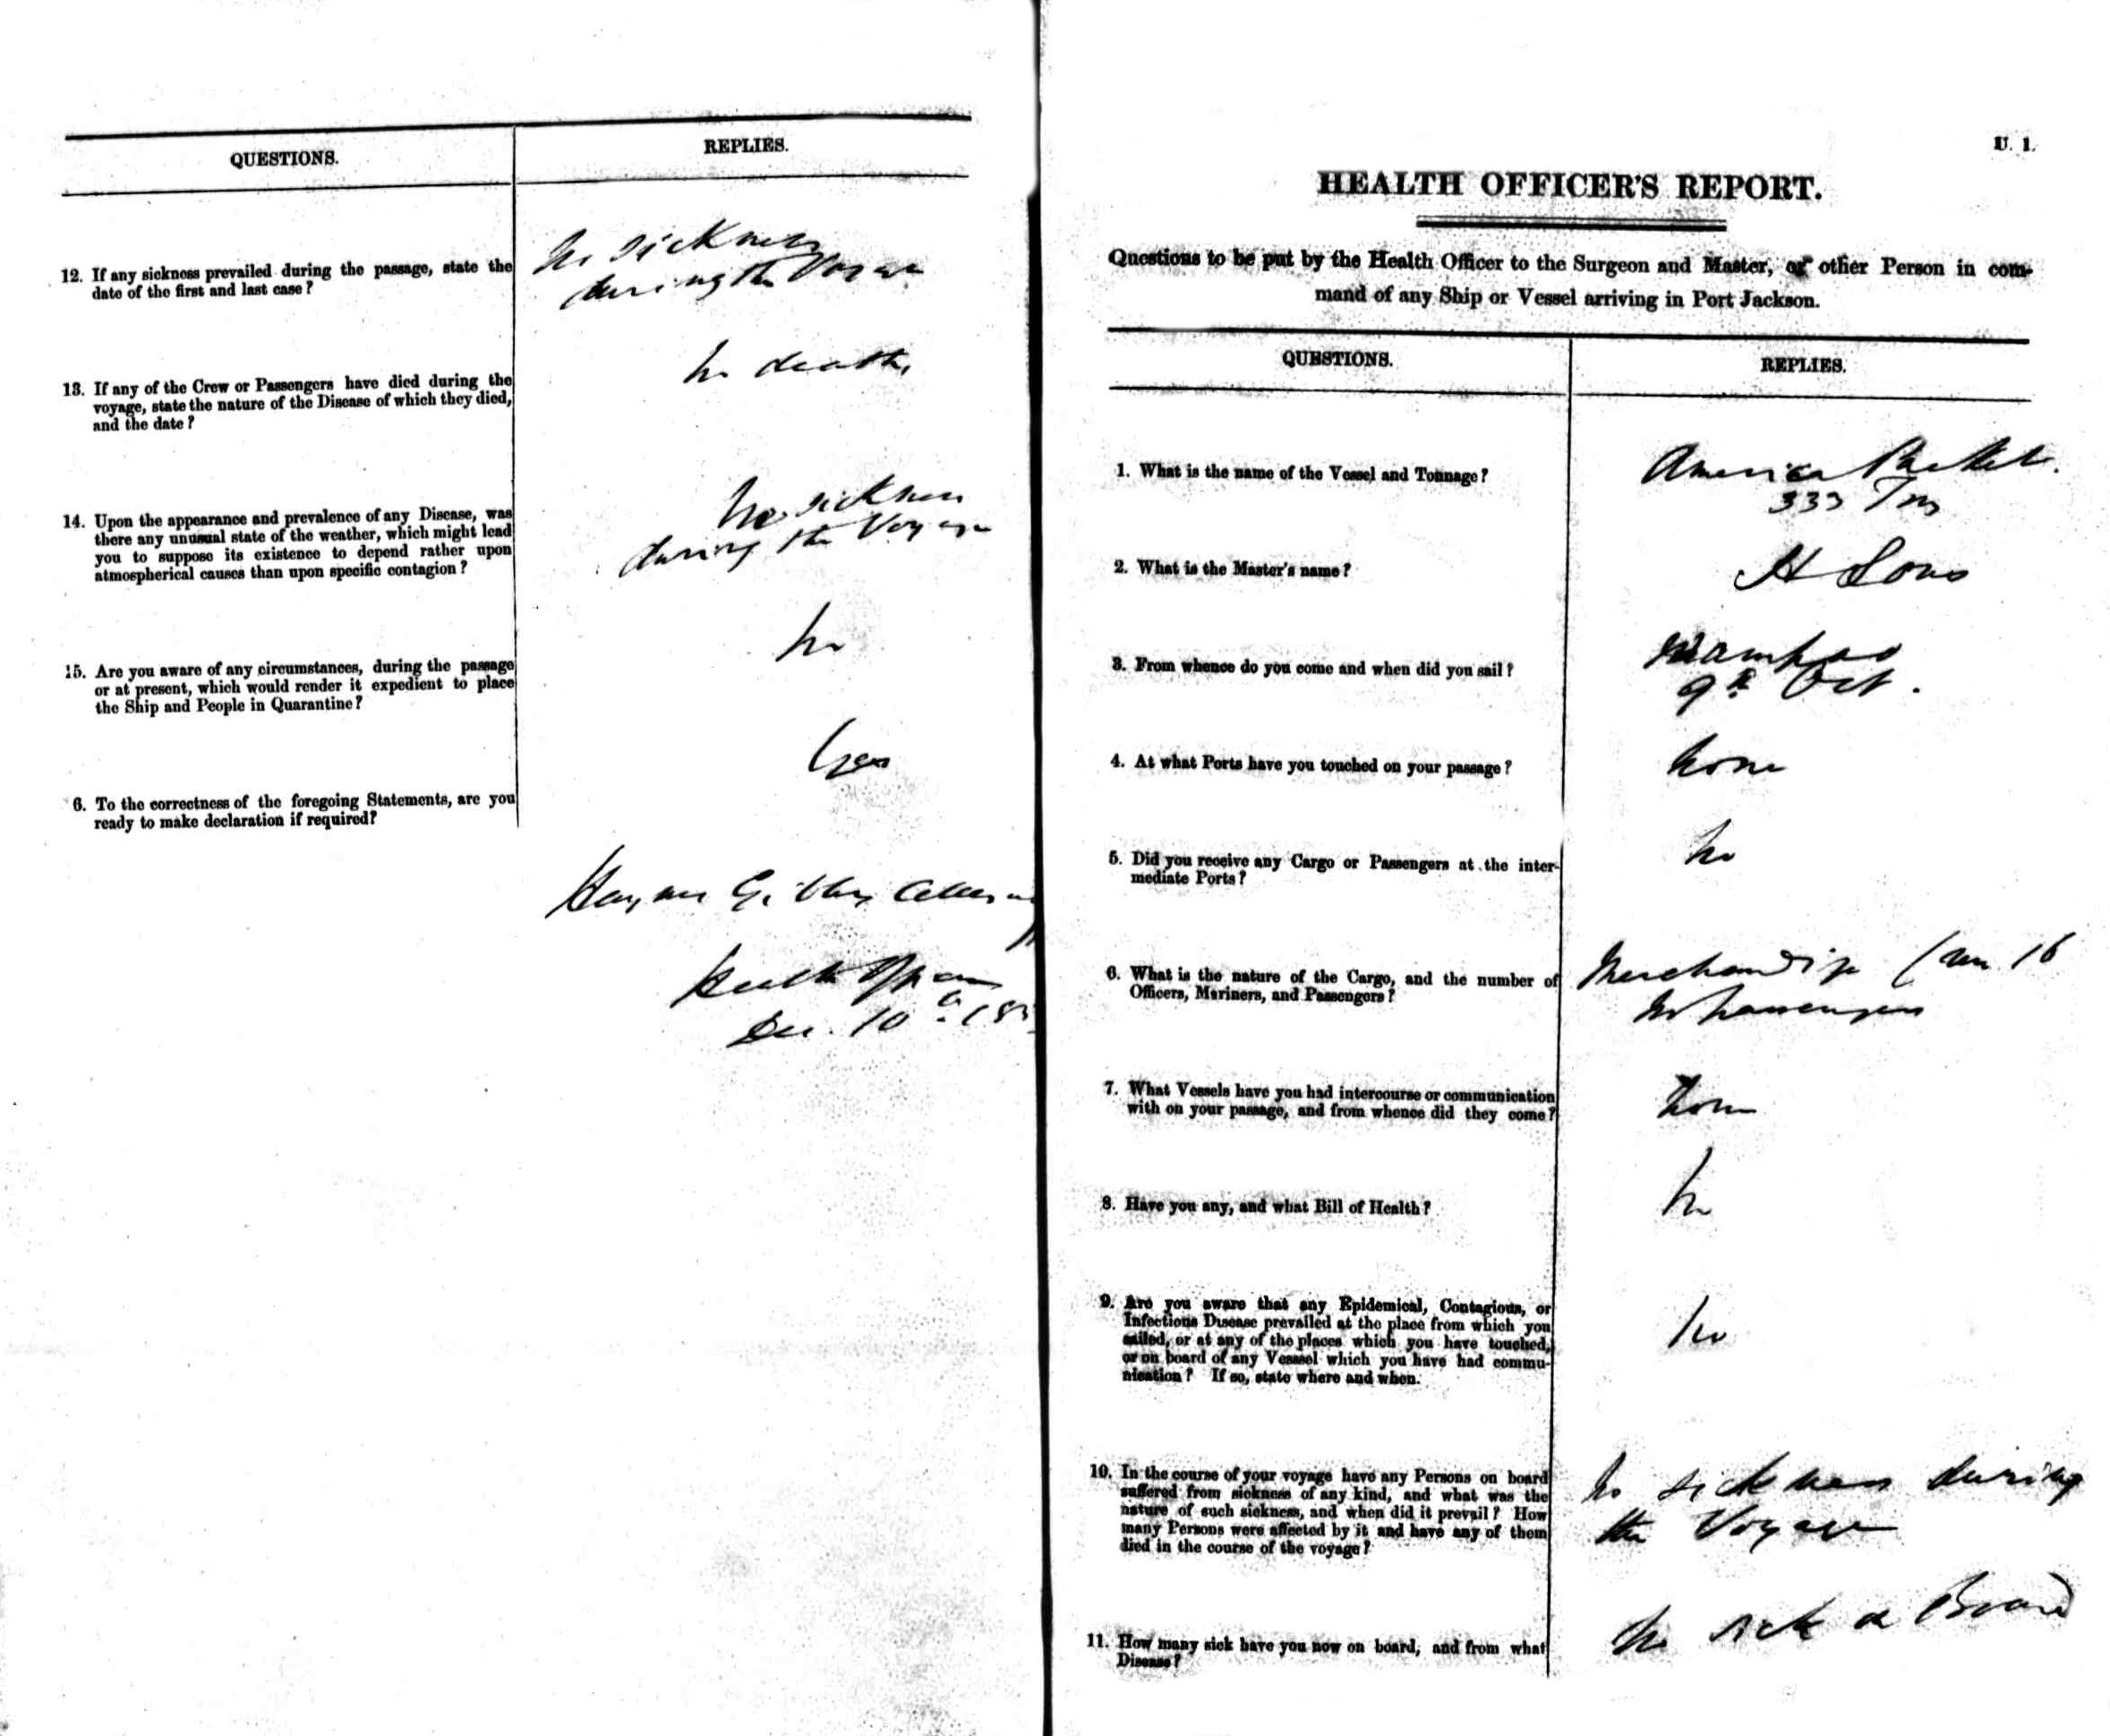 QUESTIONS.
REPLIES.
12. If any sickness prevailed during the passage, state the
date of the first and last case?
No sickness
during the Voyage
13. If any of the Crew or Passengers have died during the
voyage, state the nature of the Disease of which they died,
and the date?
No death,
14. Upon the appearance and prevalence of any Disease, was
there any unusual state of the weather, which might lead
you to suppose its existence to depend rather upon
atmospherical causes than upon specific contagion?
No sickness
during the Voyage
15. Are you aware of any circumstances, during the passage
or at present, which would render it expedient to place
the Ship and People in Quarantine?
No
6. To the correctness of the foregoing Statements, are you
ready to make declaration if required?
Yes
Haynes Gibbes Alleyne
Health Officer
Dec. 10th 185
U. 1.
HEALTH OFFICER'S REPORT.
Questions to be put by the Health Officer to the Surgeon and Master, or other Person in com-
mand of any Ship or Vessel arriving in Port Jackson.
QUESTIONS.
REPLIES.
1. What is the name of the Vessel and Tonnage?
America Packet.
333 Tns
2. What is the Master's name?
H
3. From whence do you come and when did you sail?
Wampoo
9th Oct.
4. At what Ports have you touched on your passage?
None
5. Did you receive any Cargo or Passengers at the inter-
mediate Ports?
No
6. What is the nature of the Cargo, and the number of
Officers, Mariners, and Passengers?
Merchandise Crew 16
No Passengers
7. What Vessels have you had intercourse or communication
with on your passage, and from whence did they come?
None
8. Have you any, and what Bill of Health?
No
9. Are you aware that any Epidemical, Contagious, or
Infectious Disease prevailed at the place from which you
sailed, or at any of the places which you have touched,
or on board of any Vesssel which you have had commu-
nication? If so, state where and when.
No
10. In the course of your voyage have any Persons on board
suffered from sickness of any kind, and what was the
nature of such sickness, and when did it prevail? How
many Persons were affected by it and have any of them
died in the course of the voyage?
No sickness during
the Voyage
11. How many sick have you now on board, and from what
Disease?
No sick on Board